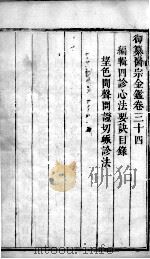 御纂醫宗金鑑卷三十四
編輯四診心法要訣目錄
望色聞聲問證切脈診法